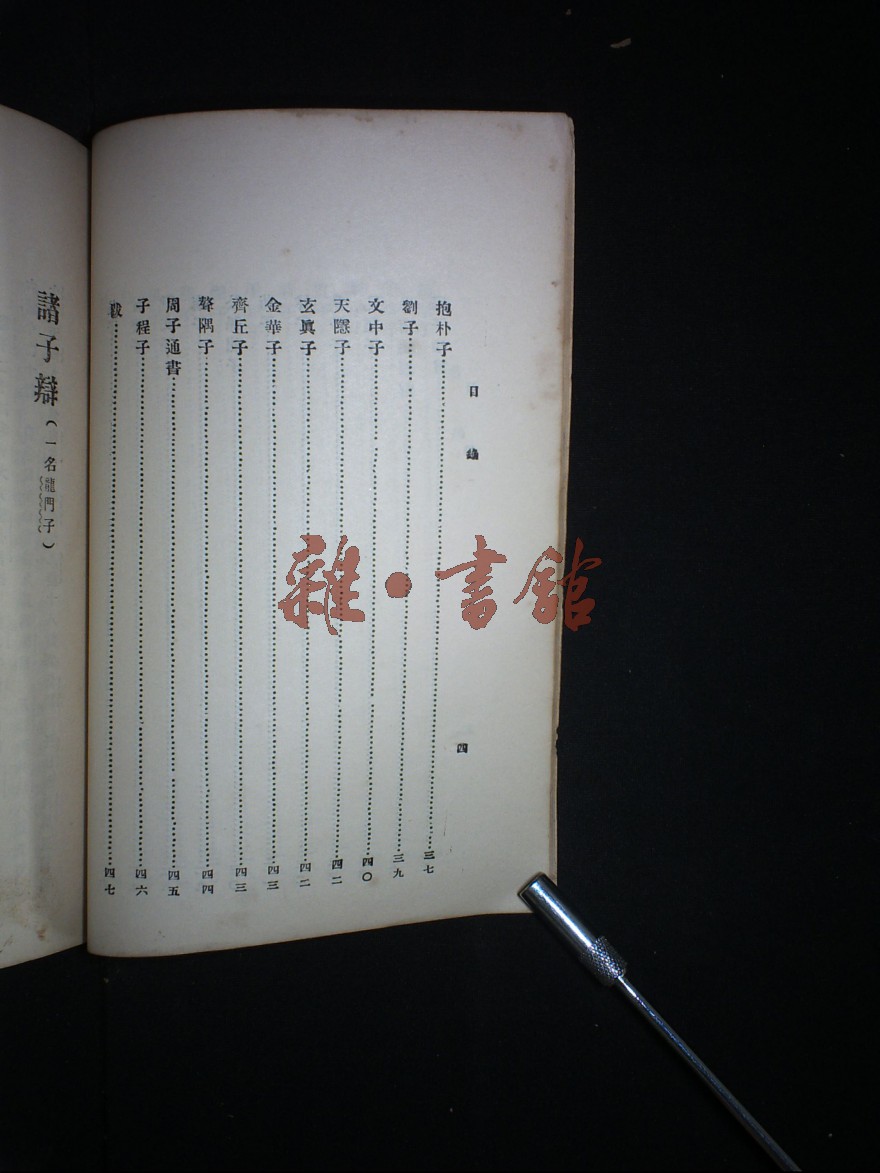 目錄
四
抱朴子……三七
劉子……三九
文中子……四〇
天隱子……四二
玄眞子……四二
金華子……四三
齊丘子……四三
聱隅子……四四
周子通書……四五
子程子……四六
跋……四七
諸子辯(一名龍門子)
雜·書館